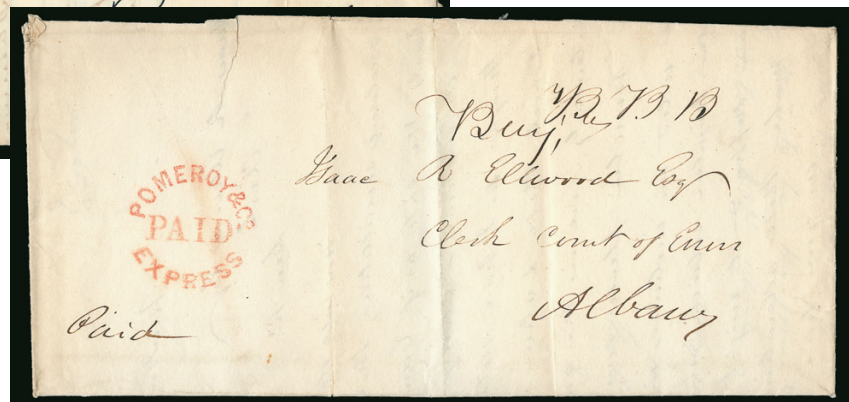 B B B
Isaac R Ellwood Esq
Clerk Court of Errors
Albany
POMEROY & Co.
PAID
EXPRESS
Paid